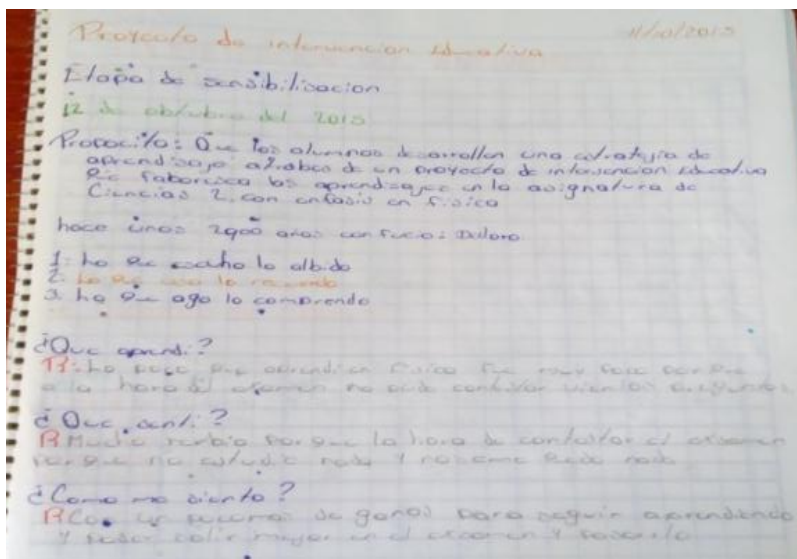 Proyecto de intervencion educativa 11/10/2015
Etapa de sensibilisacion
12 de obtubre del 2015
Propocito: Que los alumnos desarrollen una estratejia de
aprendisaje atrabes de un proyecto de intervencion educativa
que faboresca los aprendisajes en la asignatura de
Ciencias 2. con enfasis en fisica
hace unos 2400 años confucio: Dclaro
1: lo que escucho lo albido
2: lo que veo lo recuerdo
3. lo que ago lo comprendo
¿Que aprendi?
R: Lo poco que aprendi en fisica fue muy poco porque
a la hora del examen no pude contestar
¿Que senti?
R Mucha rabia porque la hora de contestar el examen
porque no estudie nada y
¿Como me siento?
R Con de ganas para seguir aprendiendo
y poder salir mejor en el examen y